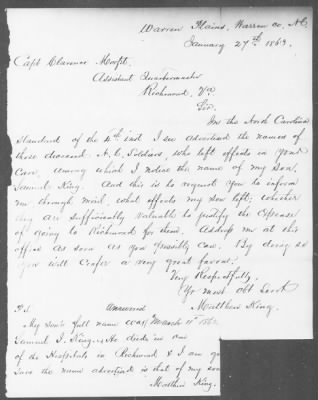 Warren Plains, Warren co, N.C.
January 27th 1863.
Capt Clarence Morfit,
Assistant Quartermaster
Richmond, Va
Sir.
In the North Carolina
Standard of the 4th inst I see advertised the names of
those deceased N. C. Soldiers, who left effects in your
Care, among which I notice the name of my son,
Samuel King. And this is to request you to inform
me through mail, what effects my son left; whether
they are sufficiently valuable to justify the expense
of going to Richmond for them. Address me at this
office as soon as you possibly can. By doing so
you will confer a very great favor.
Very Respectfully,
Yr most obt Servt
Matthew King.
P.S. Answered March 11th 1863
My son's full name was
Samuel J. King. He died in one
of the Hospitals in Richmond & I am
sure the name advertised is that of my son
Matthew King.